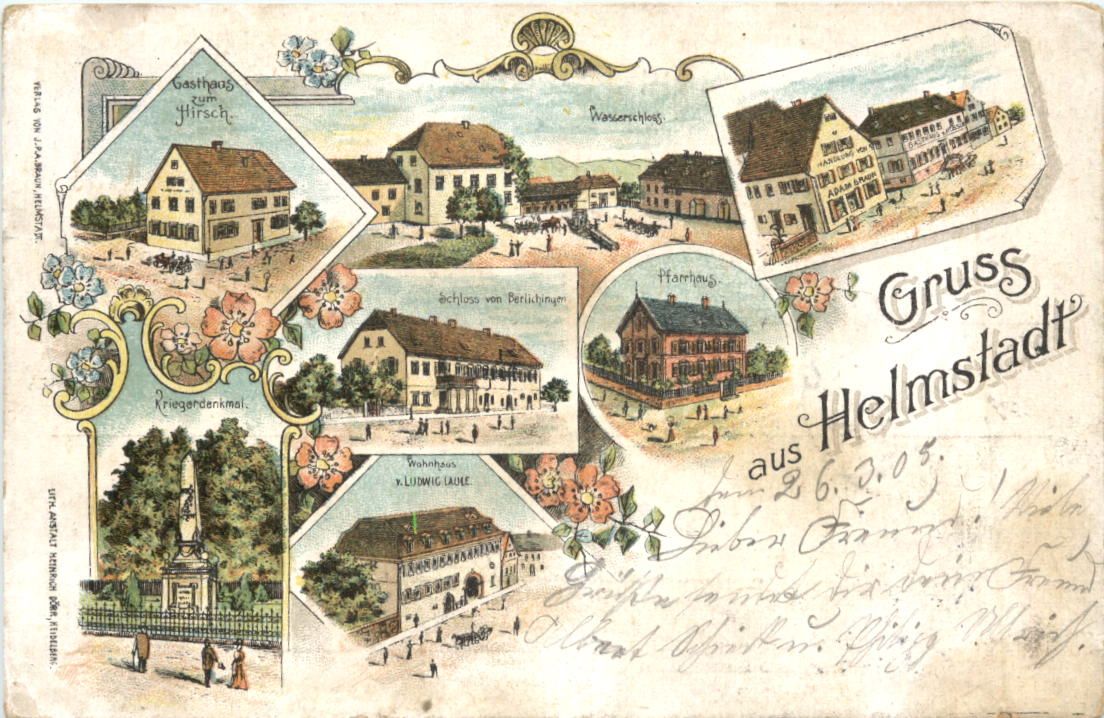 VERLAG VON J.P.A. BRAUN, HELMSTADT.
Gasthaus
zum
Hirsch.
Wasserschloss.
HANDLUNG VON
ADAM BRAUN
GASTHAUS
Schloss von Berlichingen
Pfarrhaus.
Gruss
aus Helmstadt
Kriegerdenkmal.
Wohnhaus
v. LUDWIG LAULE.
LITH. ANSTALT HEINRICH DÖRR, HEIDELBERG.
den 26.3.05.
Lieber Freund! Viele
Grüße sendet dir dein Freund
Albert u.